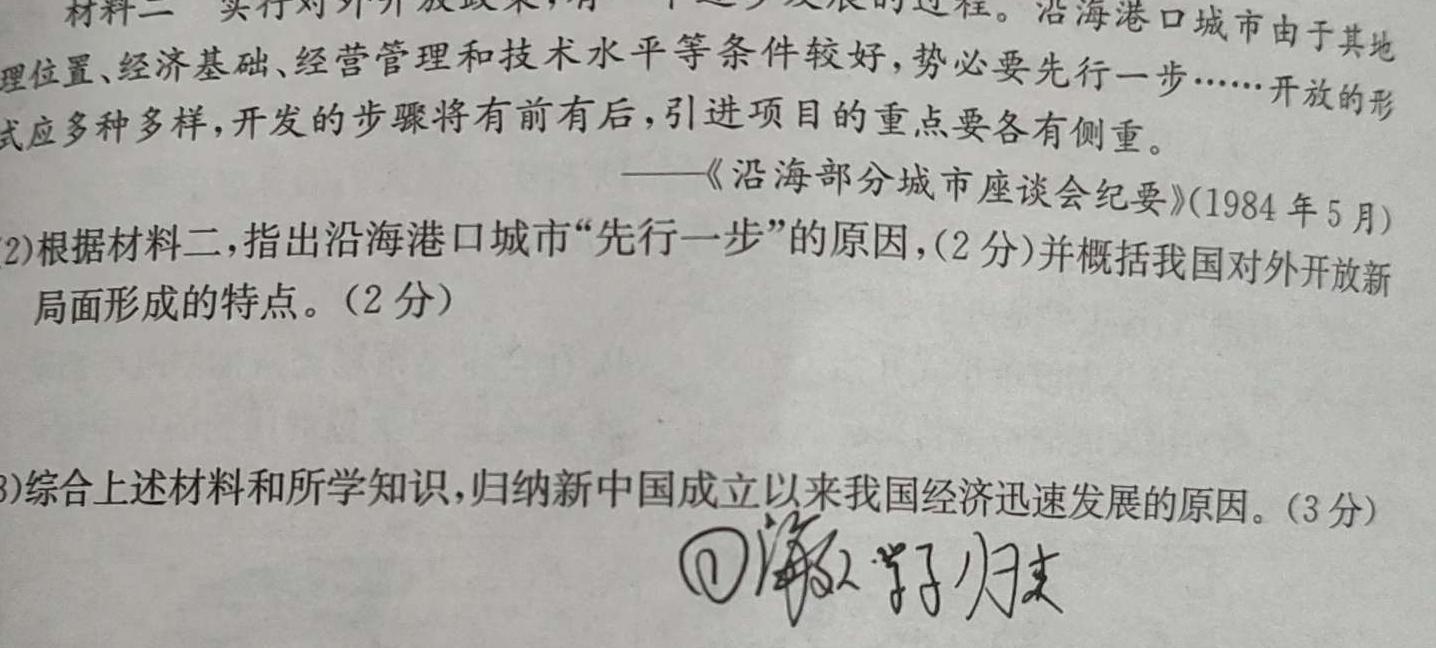 材料二 实行对外开放政策,有一个逐步发展的过程。沿海港口城市由于其地
理位置、经济基础、经营管理和技术水平等条件较好,势必要先行一步……开放的形
式应多种多样,开发的步骤将有前有后,引进项目的重点要各有侧重。
——《沿海部分城市座谈会纪要》(1984年5月)
2)根据材料二,指出沿海港口城市“先行一步”的原因,(2分)并概括我国对外开放新
局面形成的特点。(2分)
3)综合上述材料和所学知识,归纳新中国成立以来我国经济迅速发展的原因。(3分)
①海 学子归来